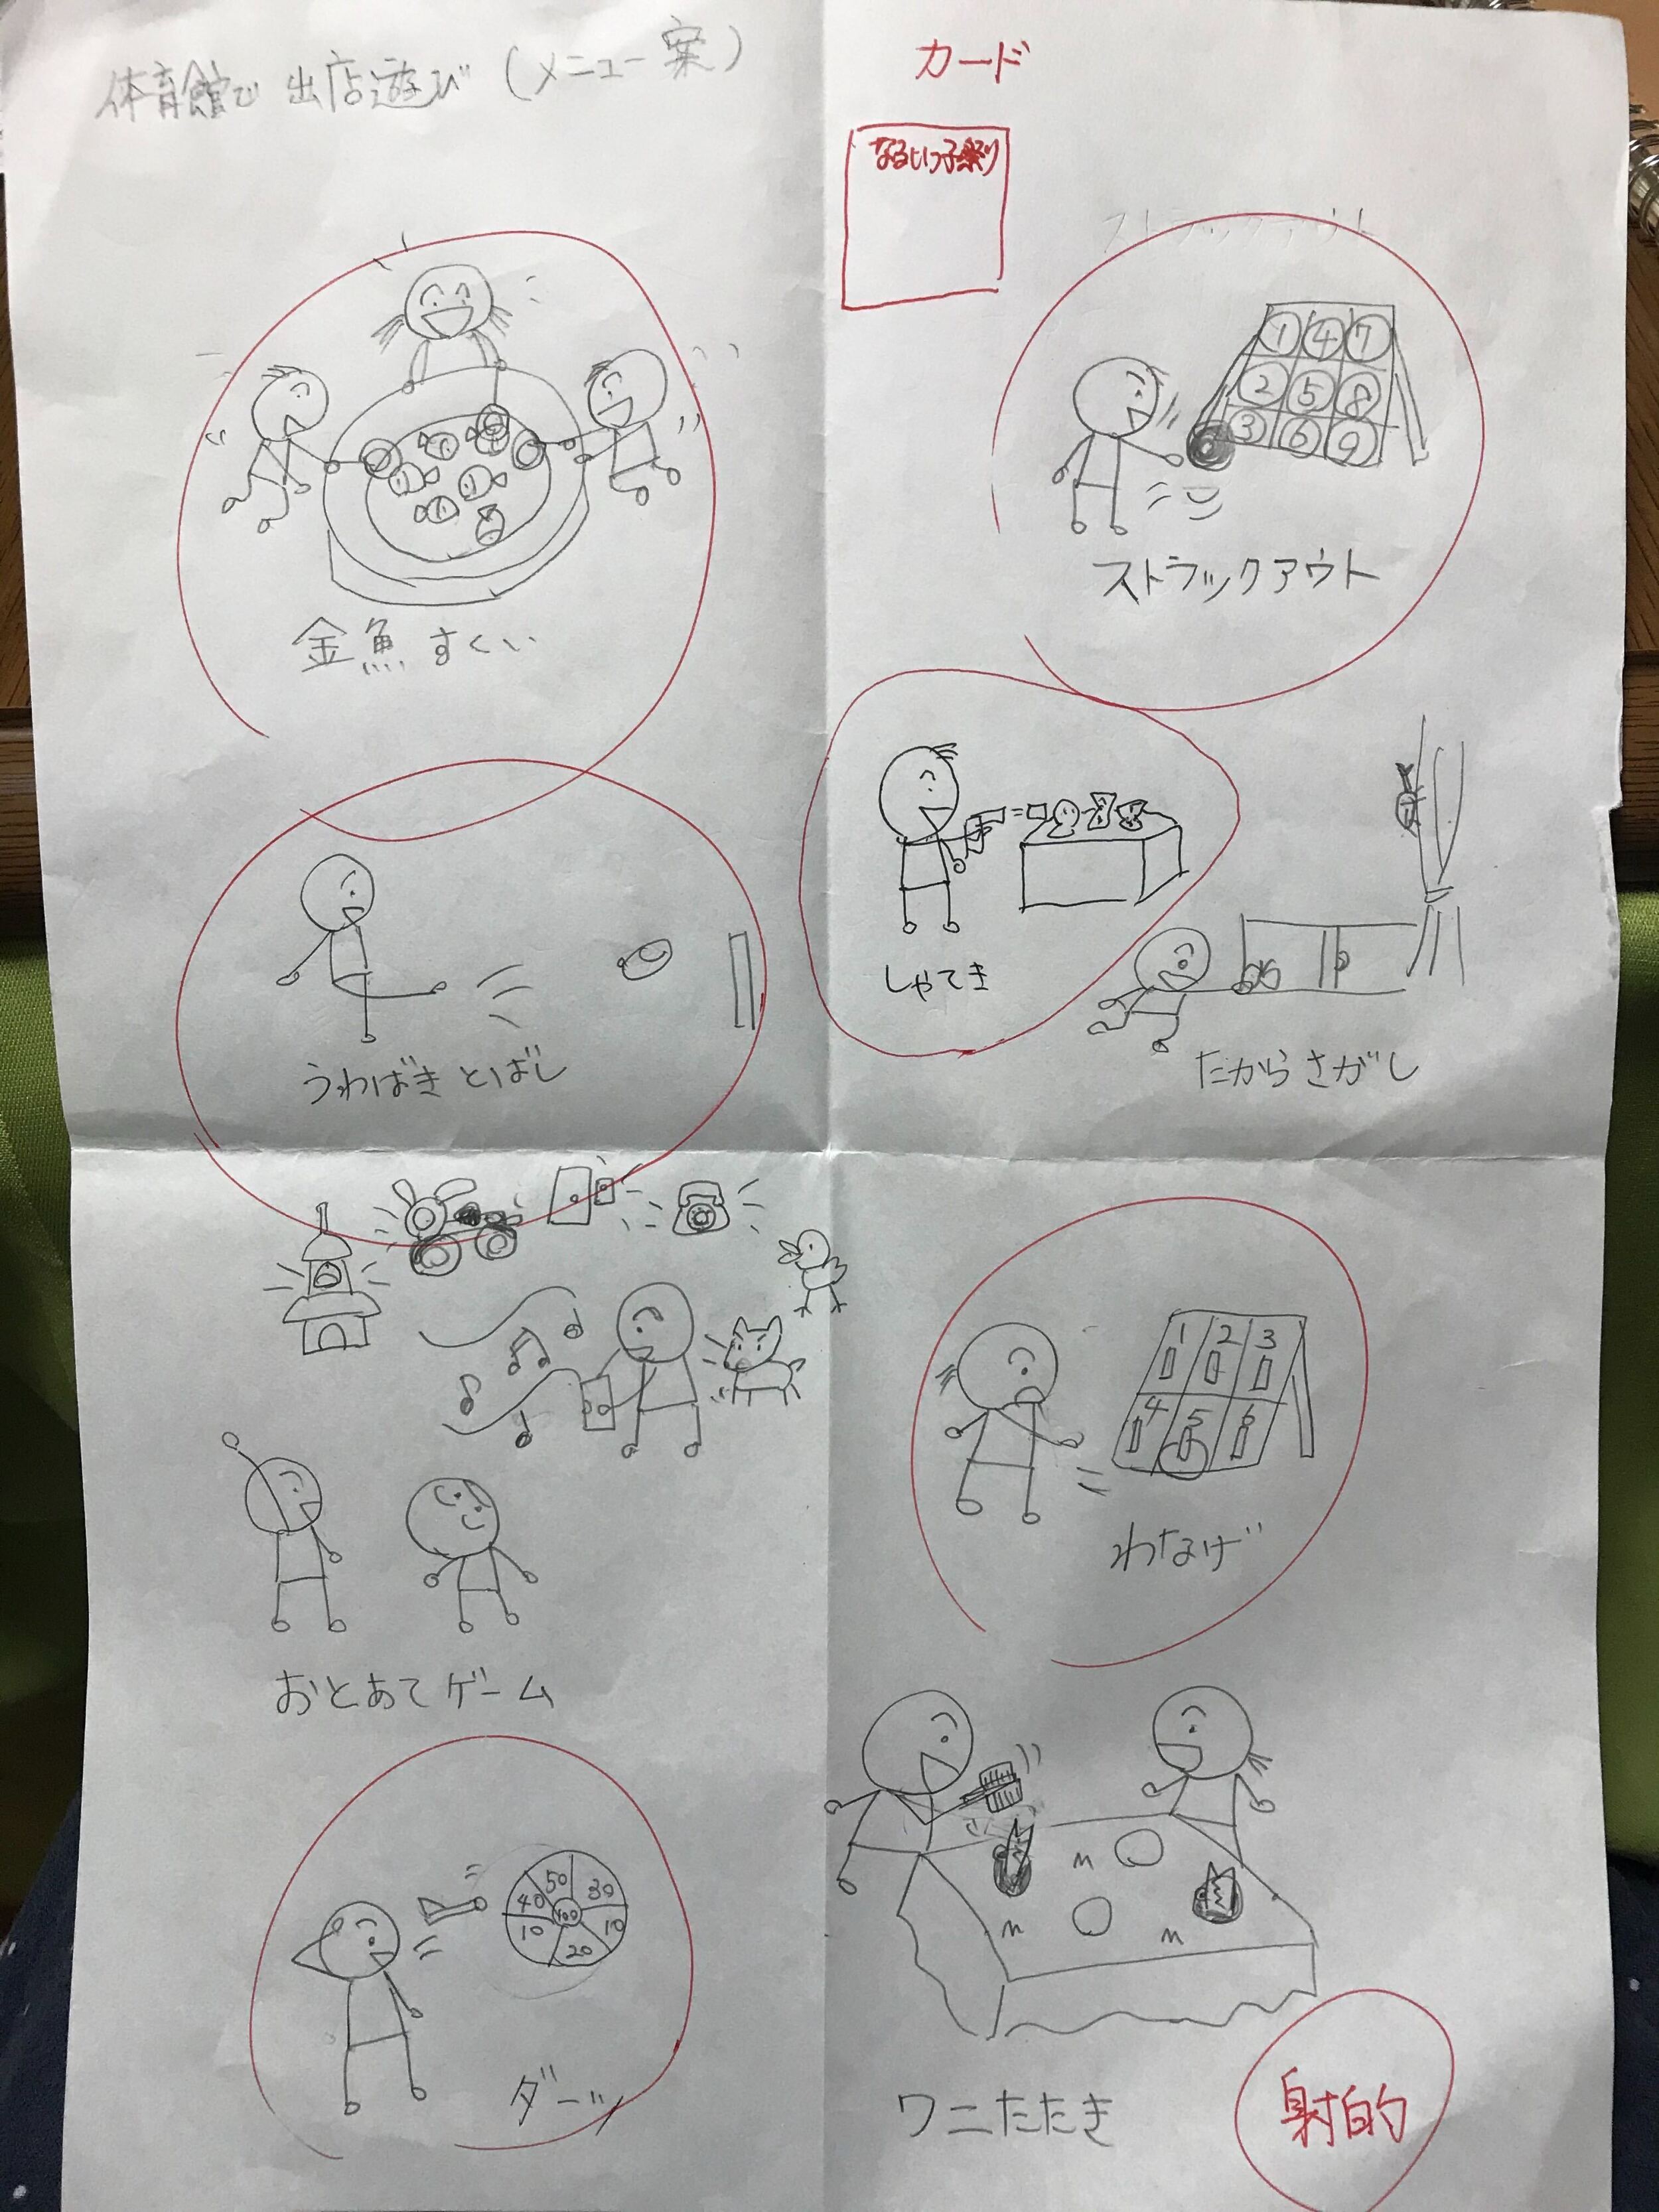 体育館で 出店遊び (メニュー案)
カード
なるいっ子祭り
ストラックアウト
1 4 7
2 5 8
3 6 9
ストラックアウト
金魚すくい
しゃてき
たからさがし
うわばきとばし
1 2 3
4 5 6
わなげ
おとあてゲーム
50
40 30
100
10 10
20
ダーツ
ワニたたき
射的